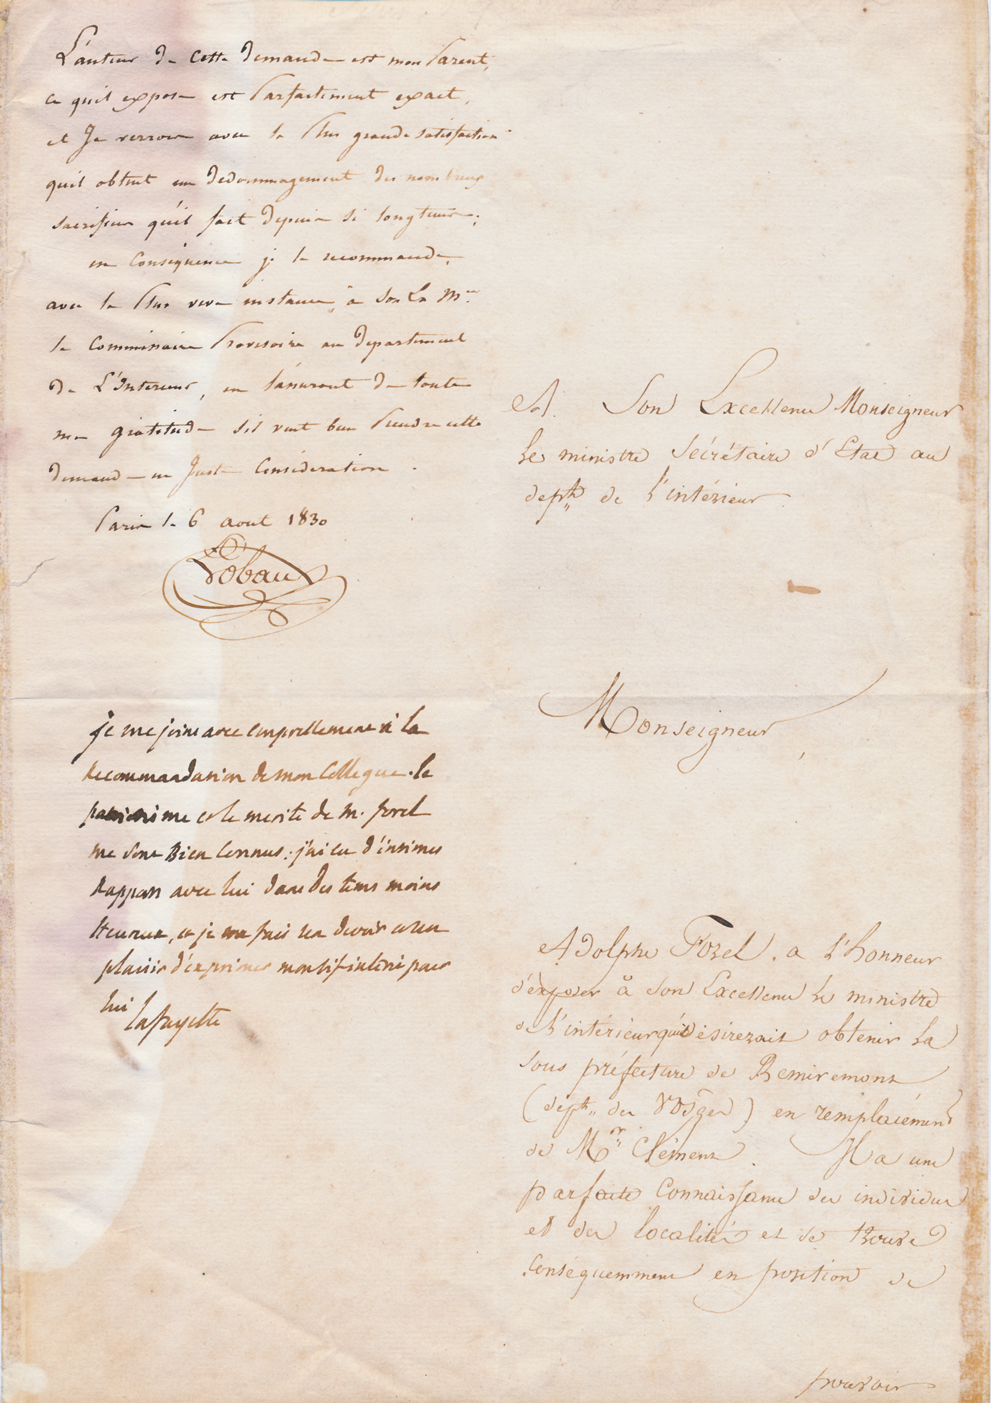 L'auteur de cette demande est mon Parent,
ce quil expose est Parfaitement exact,
et Je verrois avec la Plus grande satisfaction
quil obtint un dedommagement des nombreux
sacrifices qu'il fait depuis si longtems;
en Conséquence je le recommande,
avec la Plus vive instance, à
le Commissaire Provisoire au département
de L'Interieur, en l'assurant de toute
ma gratitude s'il veut bien Prendre cette
demande en Juste Considération.
Paris le 6 aout 1830
Lobau
je me joins avec empressement à la
Recommandation de mon Collegue. le
patriotisme et le merite de m. forel
me sont Bien Connus; j'ai eu d'intimes
Rapports avec lui dans des tems moins
Heureux, et je me fais un devoir et un
plaisir d'exprimer mon vif interet pour
lui
Lafayette
A. Son Excellence Monseigneur
Le ministre Sécrétaire d'Etat au
depth de l'intérieur
Monseigneur,
Adolphe Forel, a l'honneur
d'exposer à Son Excellence Le ministre
de l'intérieur qu'il désirerait obtenir La
sous préfecture de Remiremont
(depth des Vosges) en remplacément
de Mr Clément. Il a une
parfaite Connaissance des individus
et des localités et se trouve
Conséquemment en position de
pouvoir